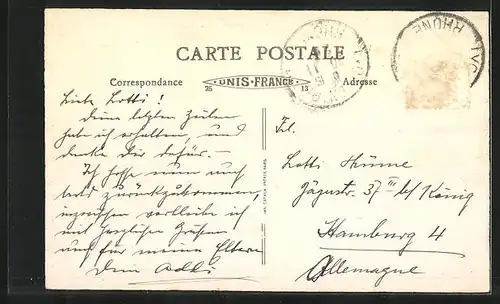 CARTE POSTALE
Correspondance
UNIS-FRANCE
26
13
Adresse
RHONE
Liebe Lotti!
Deine letzten Zeilen
hab ich erhalten, und
danke Dir dafür. -
Ich hoffe nun auch
bald zurückzukommen
inzwischen verbleibe ich
mit herzlichen Grüßen
auch für meine Eltern
Dein
Frl.
Lotti Hünne
Jägerstr. 37 III b/ König
Hamburg 4
Allemagne